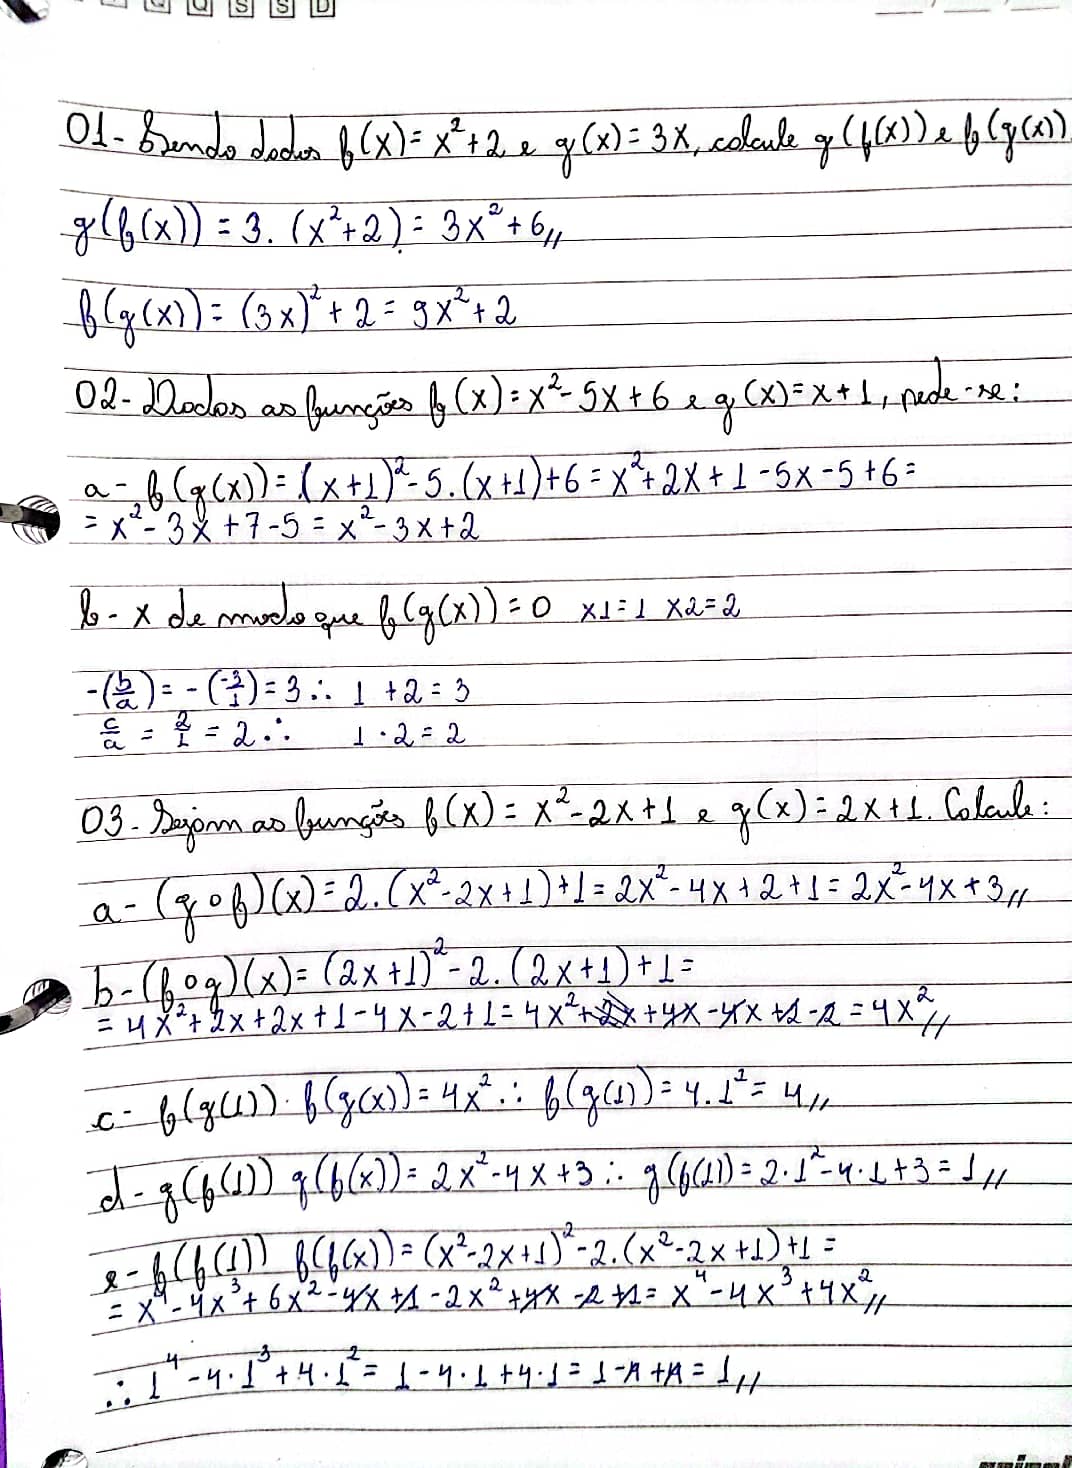 Q Q S S D
01- Sendo dados f(x) = x²+2 e g(x) = 3x, calcule g(f(x)) e f(g(x))
g(f(x)) = 3. (x²+2) = 3x²+6//
f(g(x)) = (3x)²+2 = 9x²+2
02- Dados as funções f(x) = x²-5x+6 e g(x) = x+1, pede-se:
a- f(g(x)) = (x+1)²-5.(x+1)+6 = x²+2x+1-5x-5+6 =
= x²-3x+7-5 = x²-3x+2
b- x de modo que f(g(x)) = 0 x1=1 x2=2
-(b/a) = -(-3/1) = 3 ∴ 1 + 2 = 3
c/a = 2/1 = 2 ∴ 1 · 2 = 2
03- Sejam as funções f(x) = x²-2x+1 e g(x) = 2x+1. Calcule:
a- (g∘f)(x) = 2.(x²-2x+1)+1 = 2x²-4x+2+1 = 2x²-4x+3//
b- (f∘g)(x) = (2x+1)²-2.(2x+1)+1 =
= 4x²+2x+2x+1-4x-2+1 = 4x²+2x+4x-4x+2-2 = 4x²//
c- f(g(1)). f(g(x)) = 4x² ∴ f(g(1)) = 4.1² = 4//
d- g(f(1)) g(f(x)) = 2x²-4x+3 ∴ g(f(1)) = 2·1²-4·1+3 = 1//
e- f(f(1)) f(f(x)) = (x²-2x+1)²-2.(x²-2x+1)+1 =
= x⁴-4x³+6x²-4x+1-2x²+4x-2+1 = x⁴-4x³+4x²//
∴ 1⁴-4·1³+4·1² = 1-4·1+4·1 = 1-4+4 = 1//